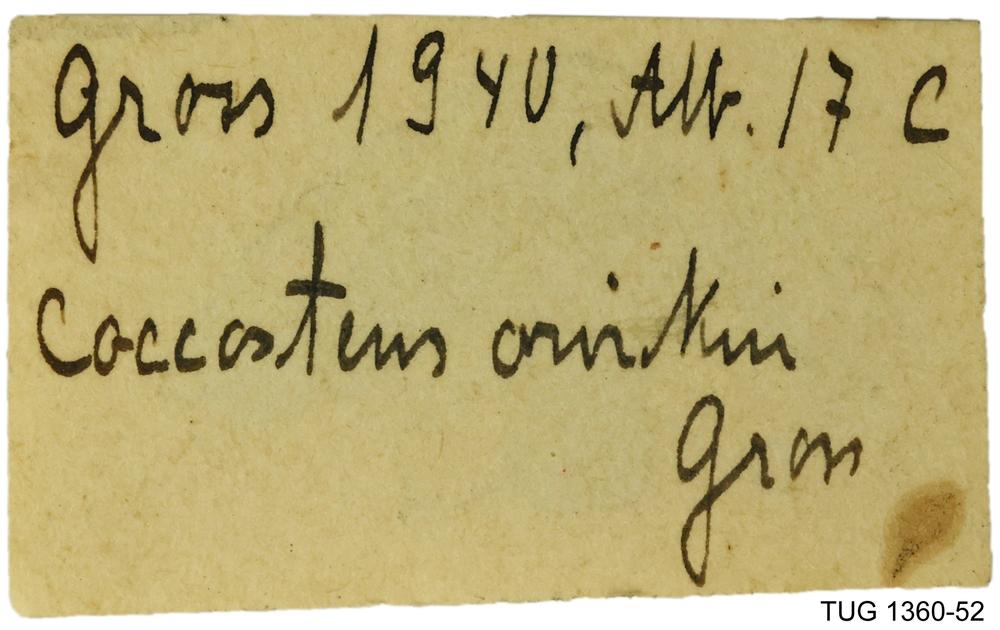 Gross 1940, Abb. 17 C
Coccosteus orvikui
Gross
TUG 1360-52